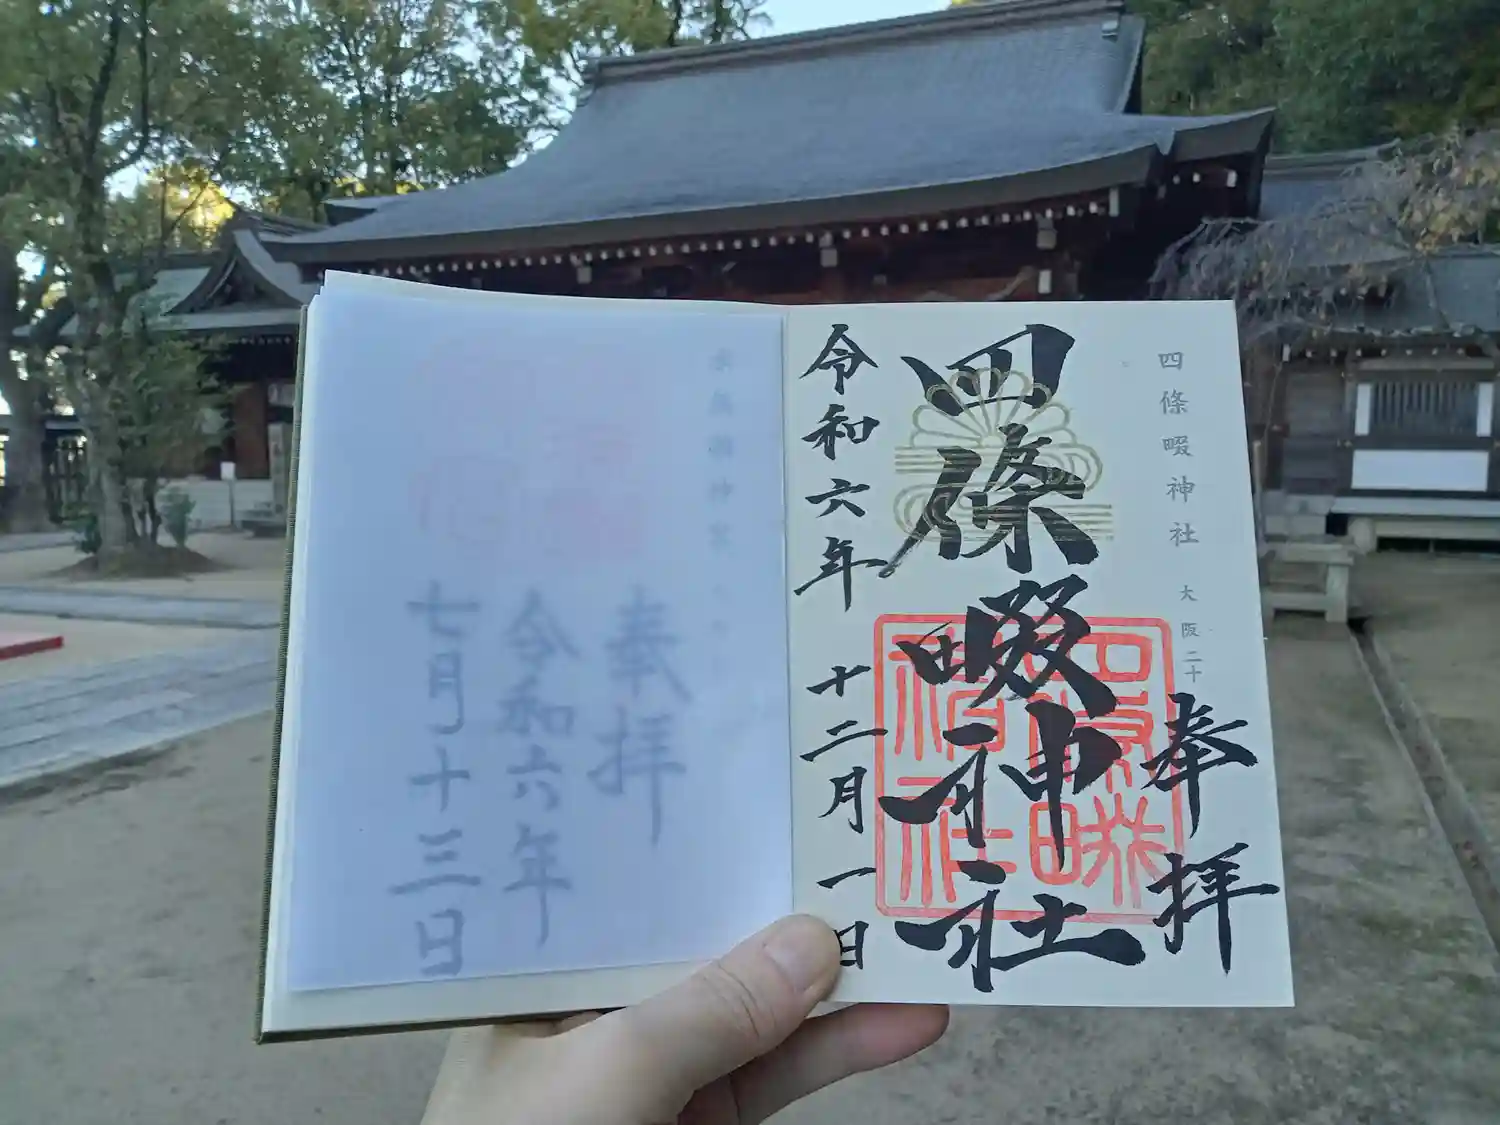 四條畷神社 大阪二十
奉拝
四條畷神社
令和六年 十二月 一日
奉拝
令和六年
七月十三日